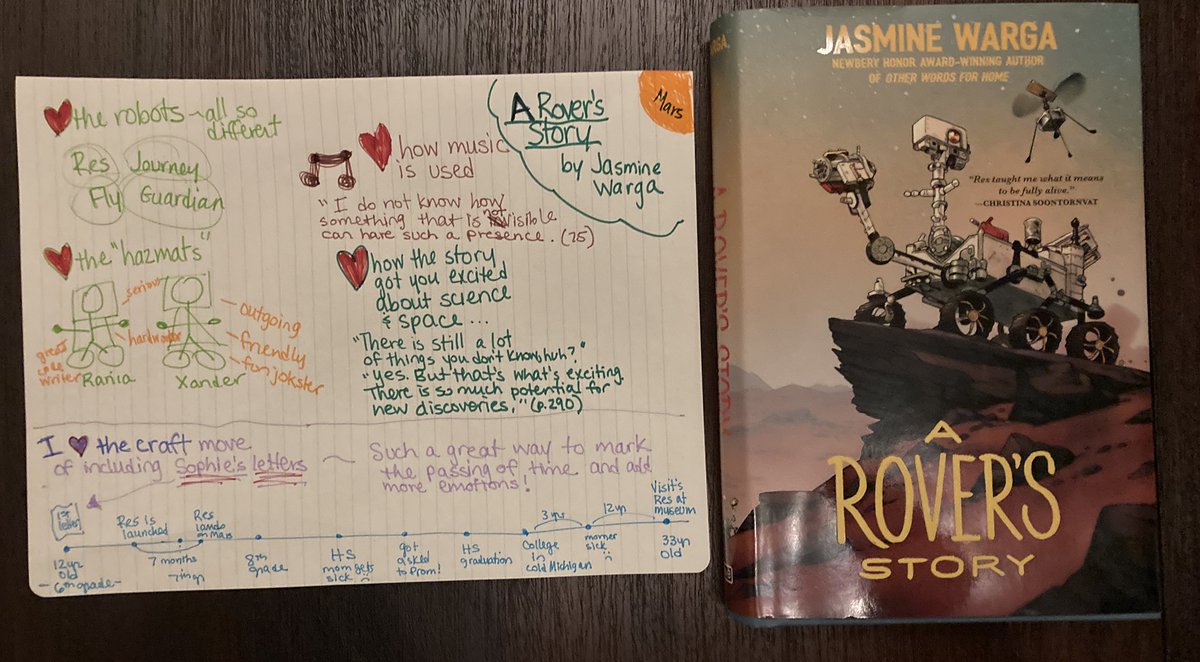 the robots ~ all so
different
Res Journey
Fly Guardian
the "hazmats"
serious
hardworker
great
code
writer
Rania
Xander
outgoing
friendly
fun jokster
how music
is used
"I do not know how
something that is not visible
can have such a presence. (75)
A Rover's
Story
by Jasmine
Warga
Mars
how the story
got you excited
about science
& space...
"There is still a lot
of things you don't know, huh?"
"yes. But that's what's exciting.
There is so much potential for
new discoveries." (p.290)
I the craft move
of including Sophie's letters
~ Such a great way to mark
the passing of time and add
more emotions!
1st
letter
12yr
old
-6th grade-
Res is
launched
7 months
Res
lands
on Mars
8th
grade
HS
mom gets
sick
got
asked
to Prom!
HS
graduation
College
in
cold Michigan
3 yrs
sick
12 yr
Visit's
Res at
museum
33yr
old
JASMINE WARGA
NEWBERY HONOR AWARD-WINNING AUTHOR
OF OTHER WORDS FOR HOME
"Res taught me what it means
to be fully alive."
—CHRISTINA SOONTORNVAT
A
ROVER'S
STORY
WARGA
A ROVER'S STORY